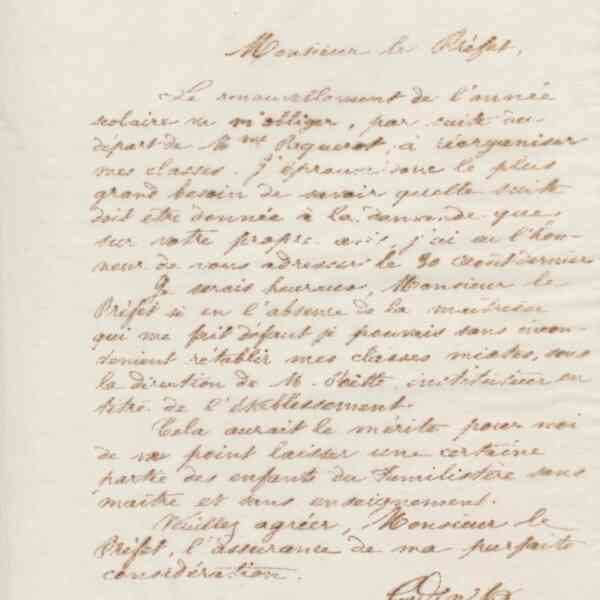 Monsieur le Préfet,
Le renouvellement de l'année
scolaire va m'obliger, par suite du
départ de Mme Requerot, à réorganiser
mes classes. J'éprouve donc le plus
grand besoin de savoir quelle suite
doit être donnée à la demande que
sur votre propre avis, j'ai eu l'hon-
neur de vous adresser le 30 août dernier
Je serais heureux, Monsieur le
Préfet si en l'absence de la maîtresse
qui me fait défaut je pouvais sans incon-
venient rétablir mes classes mixtes, sous
la direction de M. instituteur en
titre de l'établissement.
Cela aurait le mérite pour moi
de ne point laisser une certaine
partie des enfants du Familistère sans
maître et sans enseignement.
Veuillez agréer, Monsieur le
Préfet, l'assurance de ma parfaite
considération.